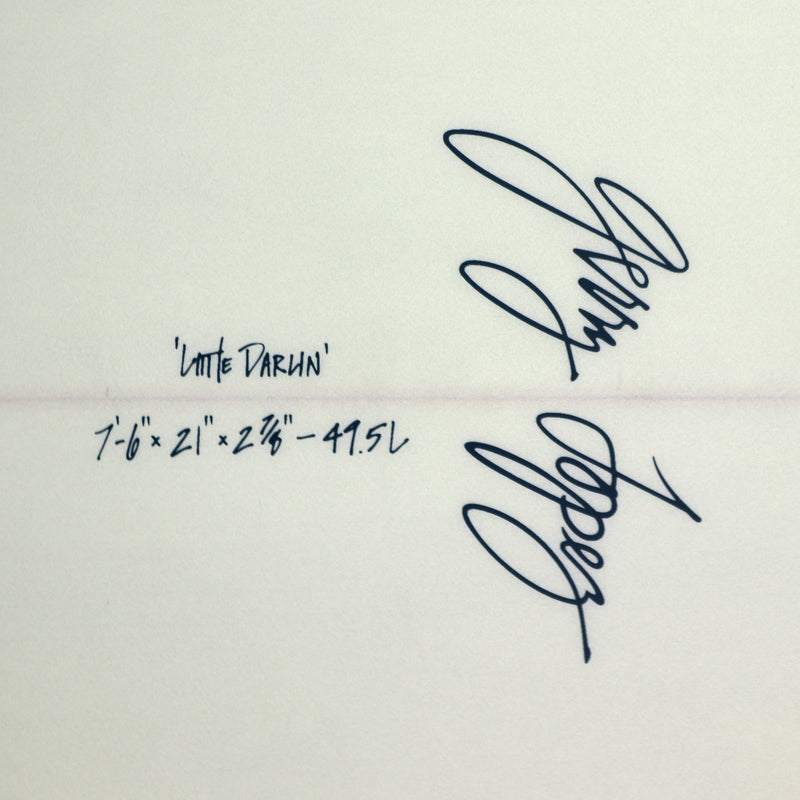 'Little Darlin'
7'-6" × 21" × 2 7/8" – 49.5L
Jerry
Lopez